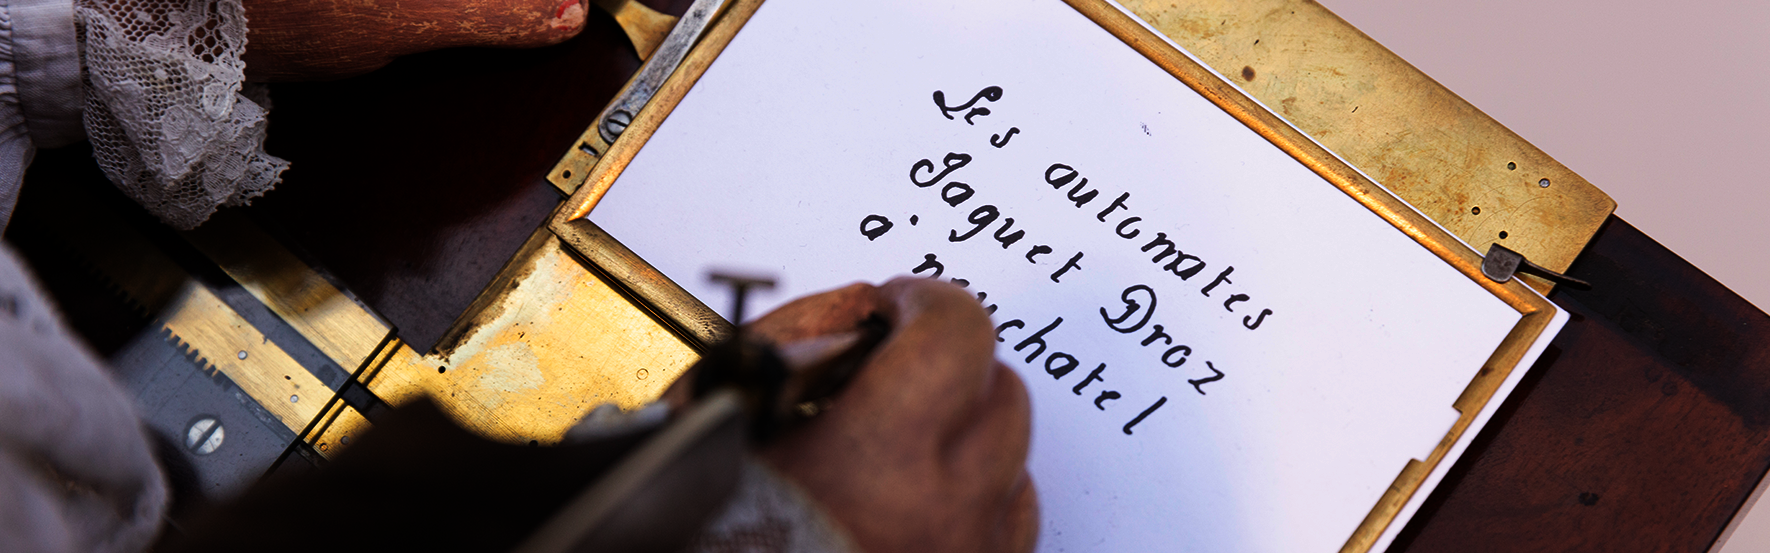 Les automates
Jaquet Droz
a' neuchatel